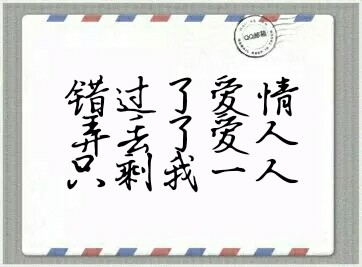 QQ邮箱
错过了爱情
弄丢了爱人
只剩我一人